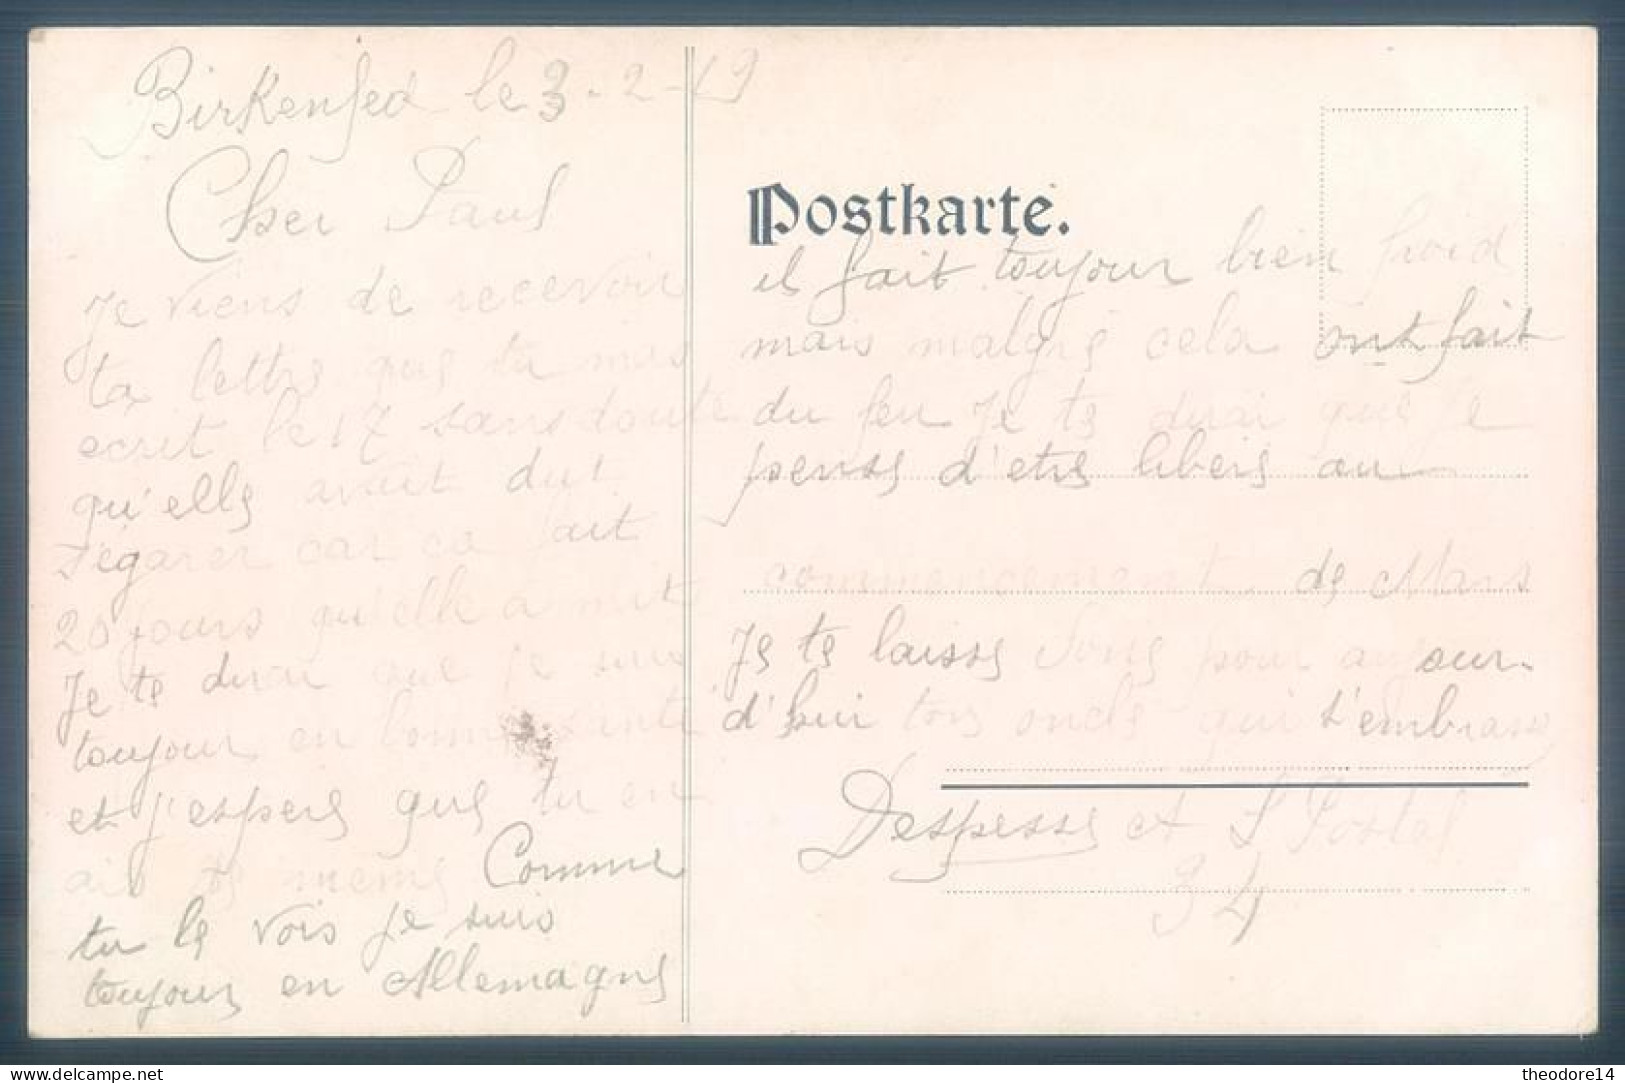 Birkenfed le 3-2-19
Cher Paul
Je viens de recevoir
ta lettre que tu mas
ecrit le 17 sans doute
qu'elle avait dut
s'égarer car ca fait
20 jours qu'elle a mit
Je te dirai que je suis
toujour en bonne santé
et j'espere que tu en
ais de meme Comme
tu le vois je suis
toujour en Allemagne
Postkarte.
il fait toujour bien froid
mais malgré cela ont fait
du feu Je te dirai que je
pense d'etre liberé au
commencement de Mars
Je te laisse pour aujour-
d'hui ton oncle qui t'embrasse
Despesse et S Postal
94
theodore14